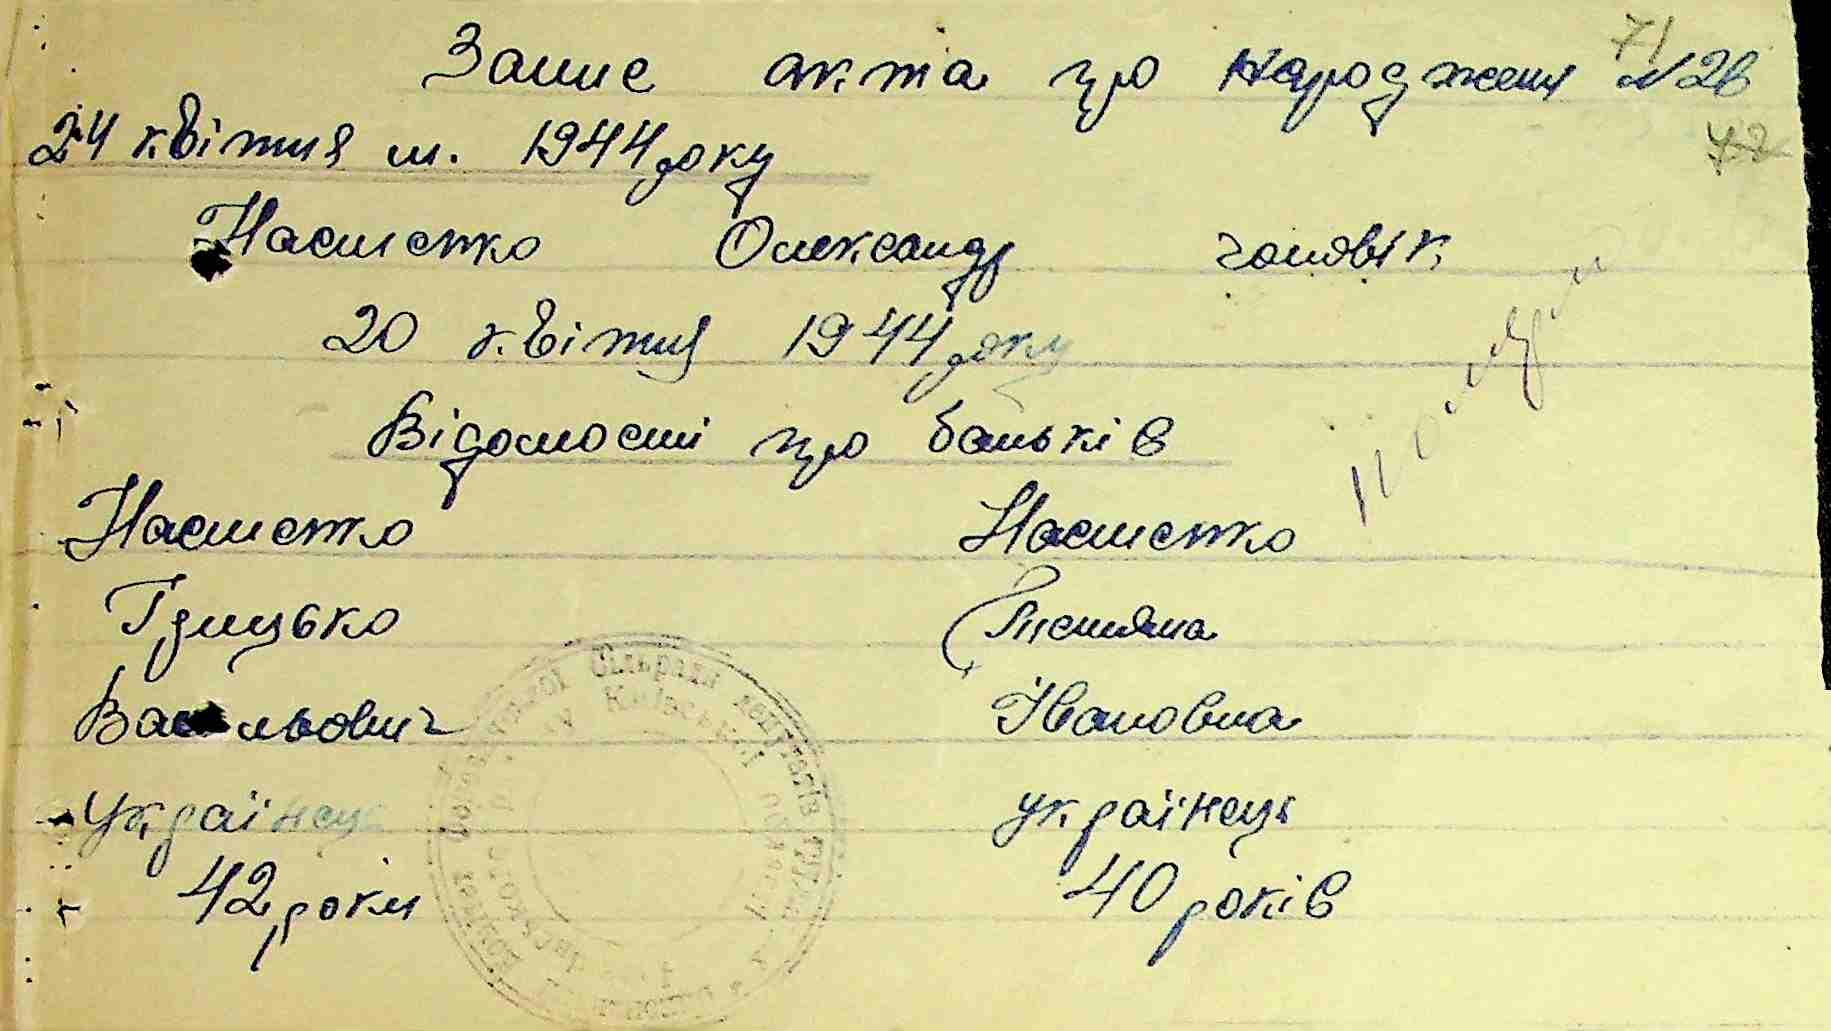 Запис акта про народження №28
71
72
24 квітня м. 1944 року
Насненко Олександр чоловік
20 квітня 1944 року
Відомості про батьків
Насненко Насненко
Грицько Тистяна
Васильович Івановна
Українець українець
42 роки 40 років
Сільради депутатів
Київської області